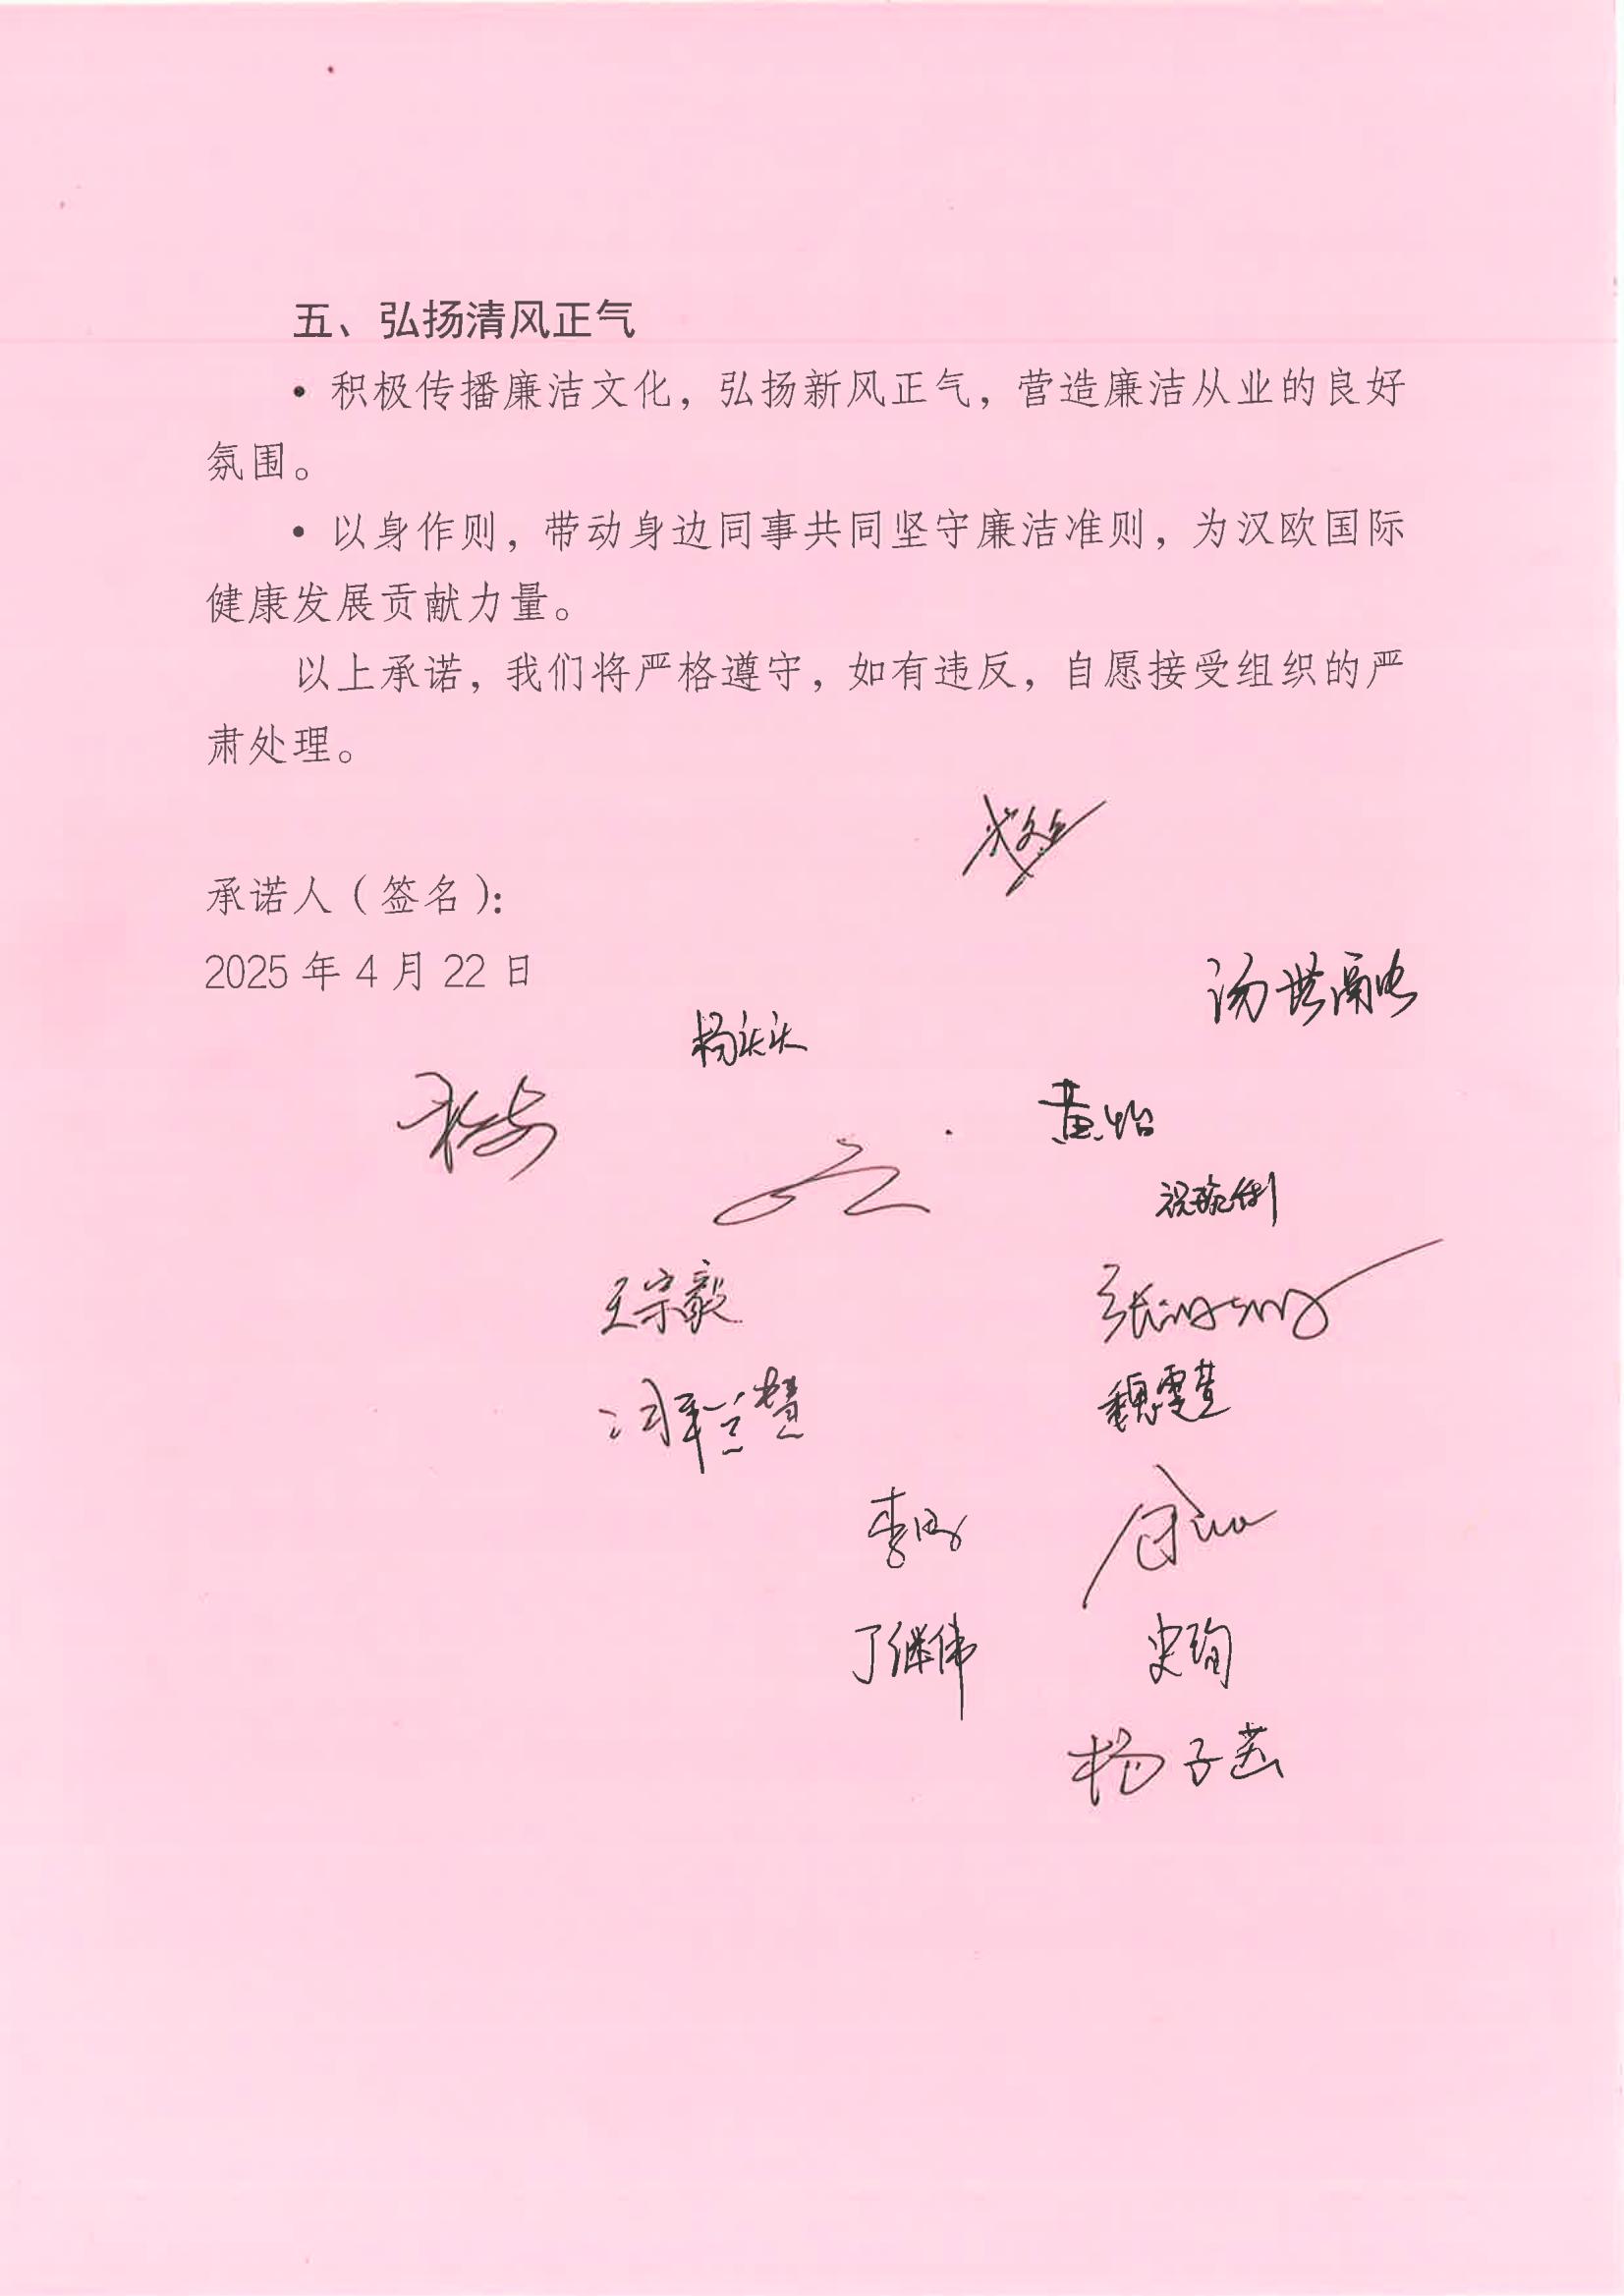 五、弘扬清风正气
• 积极传播廉洁文化，弘扬新风正气，营造廉洁从业的良好
氛围。
• 以身作则，带动身边同事共同坚守廉洁准则，为汉欧国际
健康发展贡献力量。
以上承诺，我们将严格遵守，如有违反，自愿接受组织的严
肃处理。
承诺人（签名）：
2025 年 4 月 22 日
黄怡
王宗毅
丁继伟
史珣
杨子